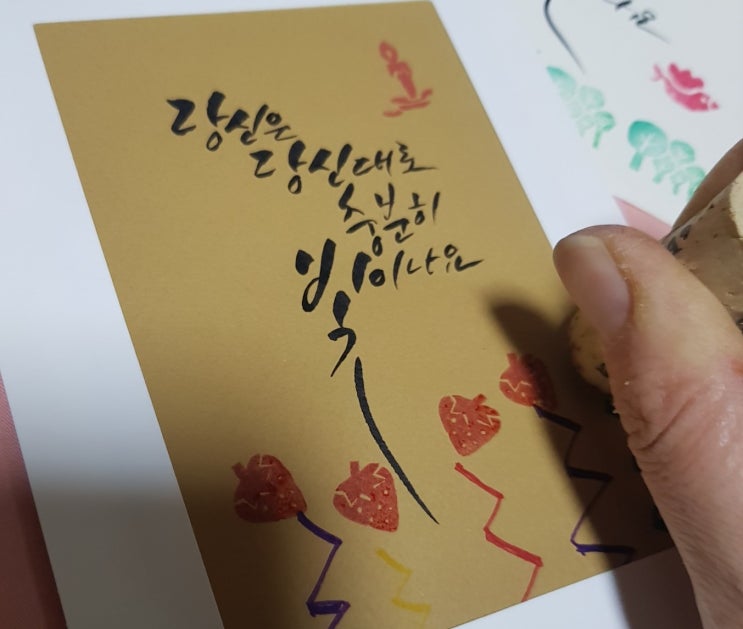 당신은
당신대로
충분히
빛이나요